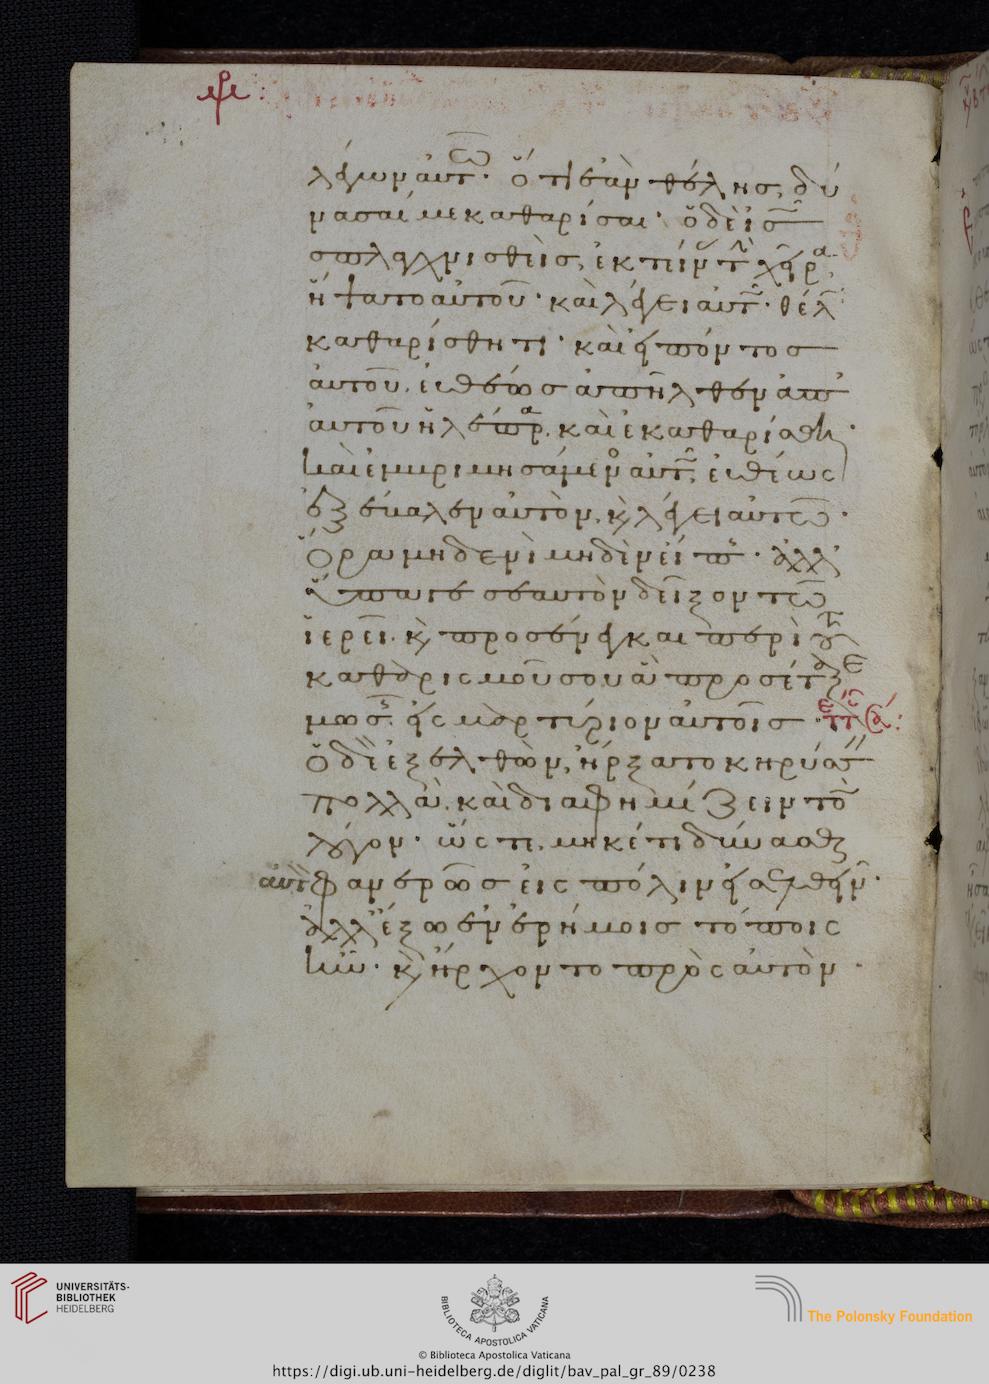 λέγων αὐτῶ· ὅτι ἐὰν θέλης, δύ
νασαί με καθαρίσαι· ὁ δὲ ἰς
σπλαγχνισθεὶς, ἐκτείν τ χεῖρα
ἥψατο αὐτοῦ· καὶ λέγει αὐτ· θέλ
καθαρίσθητι· καὶ εἰπόντος
αὐτοῦ, εὐθέως ἀπῆλθεν ἀπ
αὐτοῦ ἡ λέπρα, καὶ ἐκαθαρίσθη·
καὶ ἐμβριμησάμενο αὐτ, εὐθέως
ἐξέβαλεν αὐτὸν, κ λέγει αὐτῶ·
Ὅρα μηδενὶ μηδὲν εἴπ· ἀλλ
ὕπαγε σεαυτὸν δεῖξον τῶ
ἱερεῖ· κ προσένεγκαι περὶ τ
καθαρισμοῦ σου ἃ προσέταξε
μωσ, εἰς μαρτύριον αὐτοῖς
ὁ δὲ ἐξελθὼν, ἤρξατο κηρύσ
πολλὰ, καὶ διαφημίζειν τὸ
λόγον· ὥστε, μηκέτι δύνασθ
αὐτ φανερῶς εἰς πόλιν εἰσελθεῖν·
ἀλλ ἔξω ἐν ἐρήμοις τόποις
ἦν· κ ἤρχοντο πρὸς αὐτὸν·
UNIVERSITÄTS-
BIBLIOTHEK
HEIDELBERG
BIBLIOTECA APOSTOLICA VATICANA
The Polonsky Foundation
© Biblioteca Apostolica Vaticana
https://digi.ub.uni-heidelberg.de/diglit/bav_pal_gr_89/0238